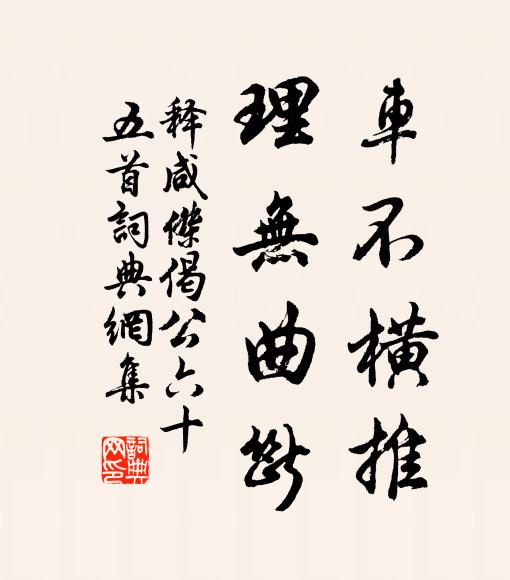 車不橫推
理無曲斷
释咸傑偈公六十
五首詞典網集
詞典网印